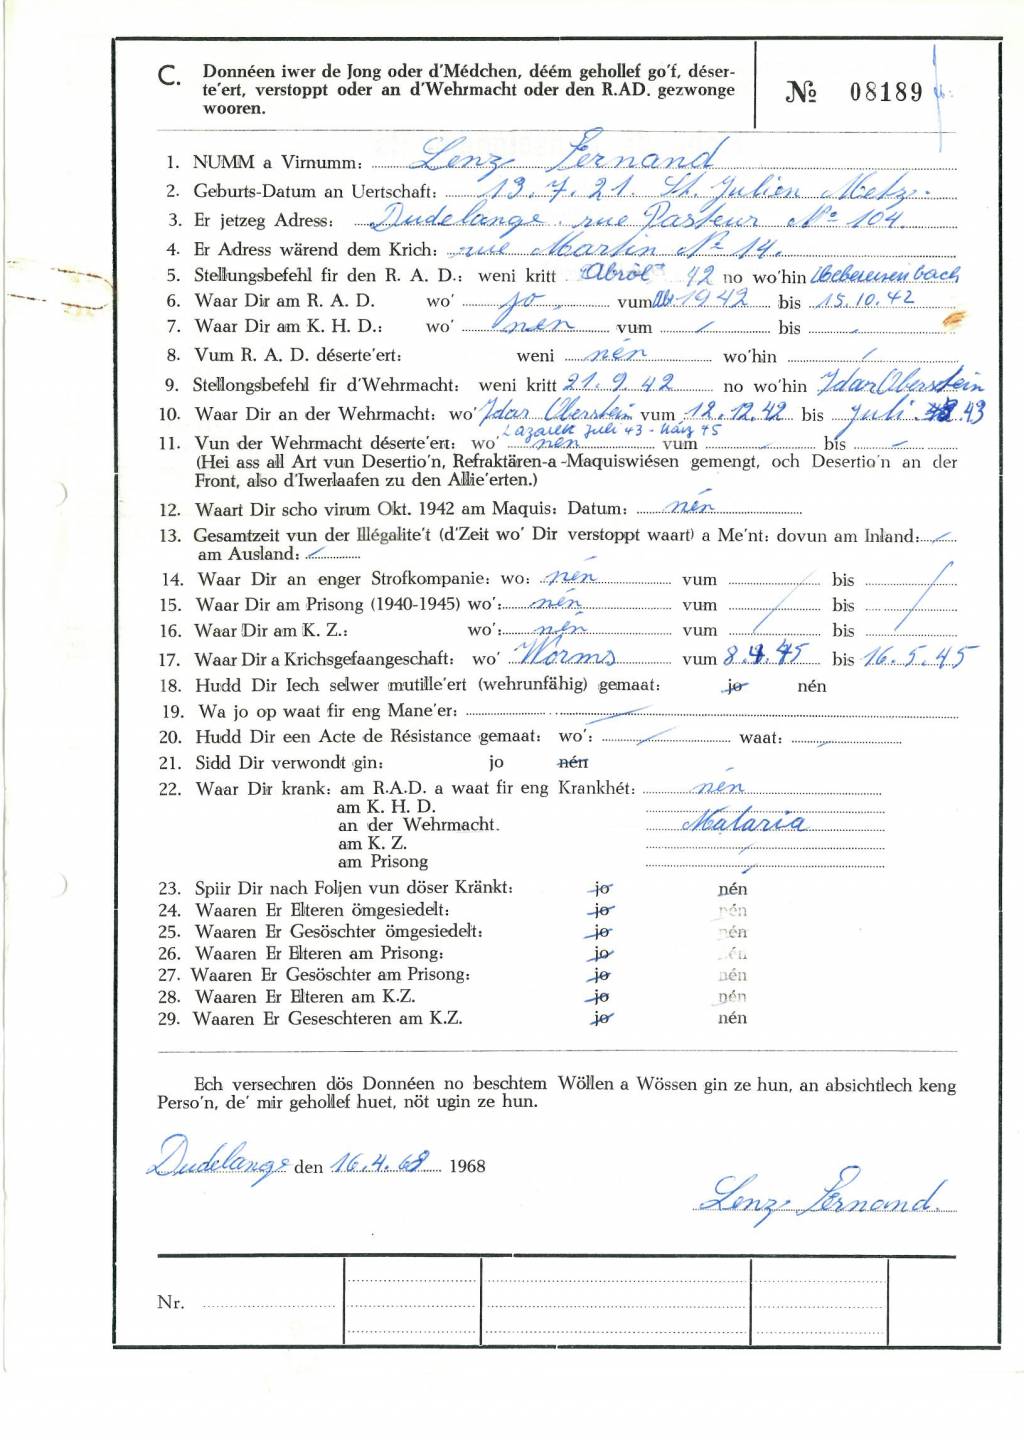 C. Donnéen iwer de Jong oder d'Médchen, déém gehollef go'f, déser-
te'ert, verstoppt oder an d'Wehrmacht oder den R.AD. gezwonge
wooren.
№ 08189
1. NUMM a Virnumm: Lenz Fernand
2. Geburts-Datum an Uertschaft: 13.7.21. St. Julien Metz.
3. Er jetzeg Adress: Dudelange rue Pasteur No 104.
4. Er Adress wärend dem Krich: rue Martin No 14.
5. Stellungsbefehl fir den R. A. D.: weni kritt Abröl 42 no wo'hin Uebereisenbach
6. Waar Dir am R. A. D. wo' jo vum Abr 1942 bis 15.10.42
7. Waar Dir am K. H. D.: wo' nén vum / bis /
8. Vum R. A. D. déserte'ert: weni nén wo'hin /
9. Stellongsbefehl fir d'Wehrmacht: weni kritt 21.9.42 no wo'hin Idar Oberstein
10. Waar Dir an der Wehrmacht: wo' Idar Oberstein vum 12.12.42 bis Juli 43
Lazarett Juli 43 - März 45
11. Vun der Wehrmacht déserte'ert: wo' nén vum / bis /
(Hei ass all Art vun Desertio'n, Refraktären-a -Maquiswiésen gemengt, och Desertio'n an der
Front, also d'Iwerlaafen zu den Allie'erten.)
12. Waart Dir scho virum Okt. 1942 am Maquis: Datum: nén
13. Gesamtzeit vun der Illégalite't (d'Zeit wo' Dir verstoppt waart) a Me'nt: dovun am Inland: /
am Ausland: /
14. Waar Dir an enger Strofkompanie: wo: nén vum / bis /
15. Waar Dir am Prisong (1940-1945) wo': nén vum / bis /
16. Waar Dir am K. Z.: wo': nén vum / bis /
17. Waar Dir a Krichsgefaangeschaft: wo' Worms vum 8.4.45 bis 16.5.45
18. Hudd Dir Iech selwer mutille'ert (wehrunfähig) gemaat: jo nén
19. Wa jo op waat fir eng Mane'er: /
20. Hudd Dir een Acte de Résistance gemaat: wo': / waat: /
21. Sidd Dir verwondt gin: jo nén
22. Waar Dir krank: am R.A.D. a waat fir eng Krankhét: nén
am K. H. D.
an der Wehrmacht. Malaria
am K. Z. /
am Prisong /
23. Spiir Dir nach Foljen vun döser Kränkt: jo nén
24. Waaren Er Elteren ömgesiedelt: jo nén
25. Waaren Er Gesöschter ömgesiedelt: jo nén
26. Waaren Er Elteren am Prisong: jo nén
27. Waaren Er Gesöschter am Prisong: jo nén
28. Waaren Er Elteren am K.Z. jo nén
29. Waaren Er Geseschteren am K.Z. jo nén
Ech versechren dös Donnéen no beschtem Wöllen a Wössen gin ze hun, an absichtlech keng
Perso'n, de' mir gehollef huet, nöt ugin ze hun.
Dudelange den 16.4.68 1968
Lenz Fernand.
Nr.